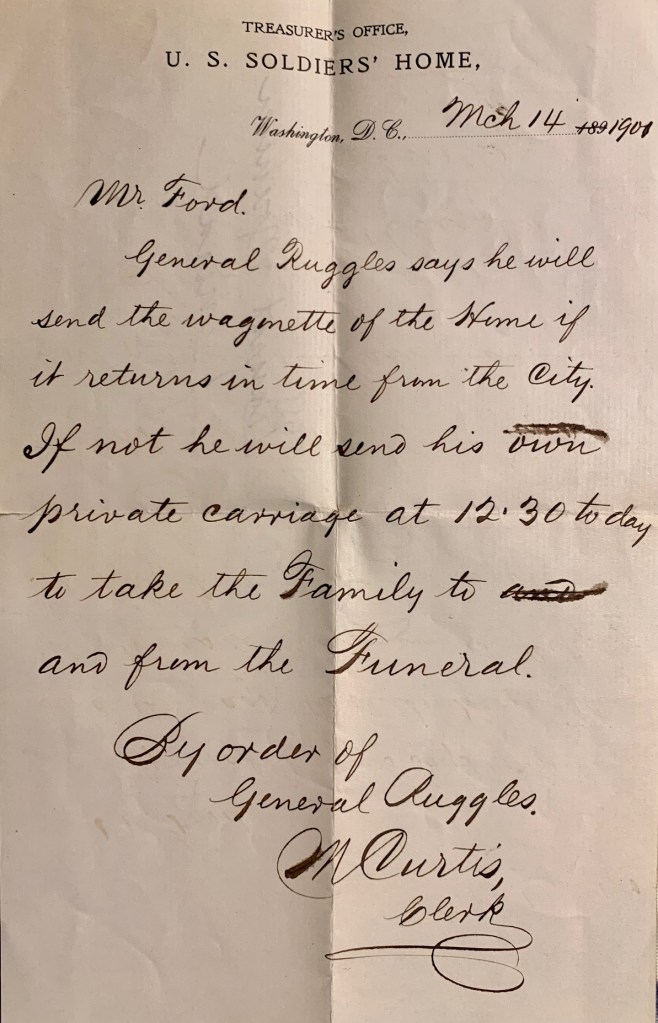 TREASURER'S OFFICE,
U. S. SOLDIERS' HOME,
Washington, D. C., Mch 14 189 1901
Mr. Ford.
General Ruggles says he will
send the wagonette of the Home if
it returns in time from the City.
If not he will send his own
private carriage at 12.30 today
to take the Family to and
and from the Funeral.
By order of
General Ruggles.
M Curtis,
Clerk